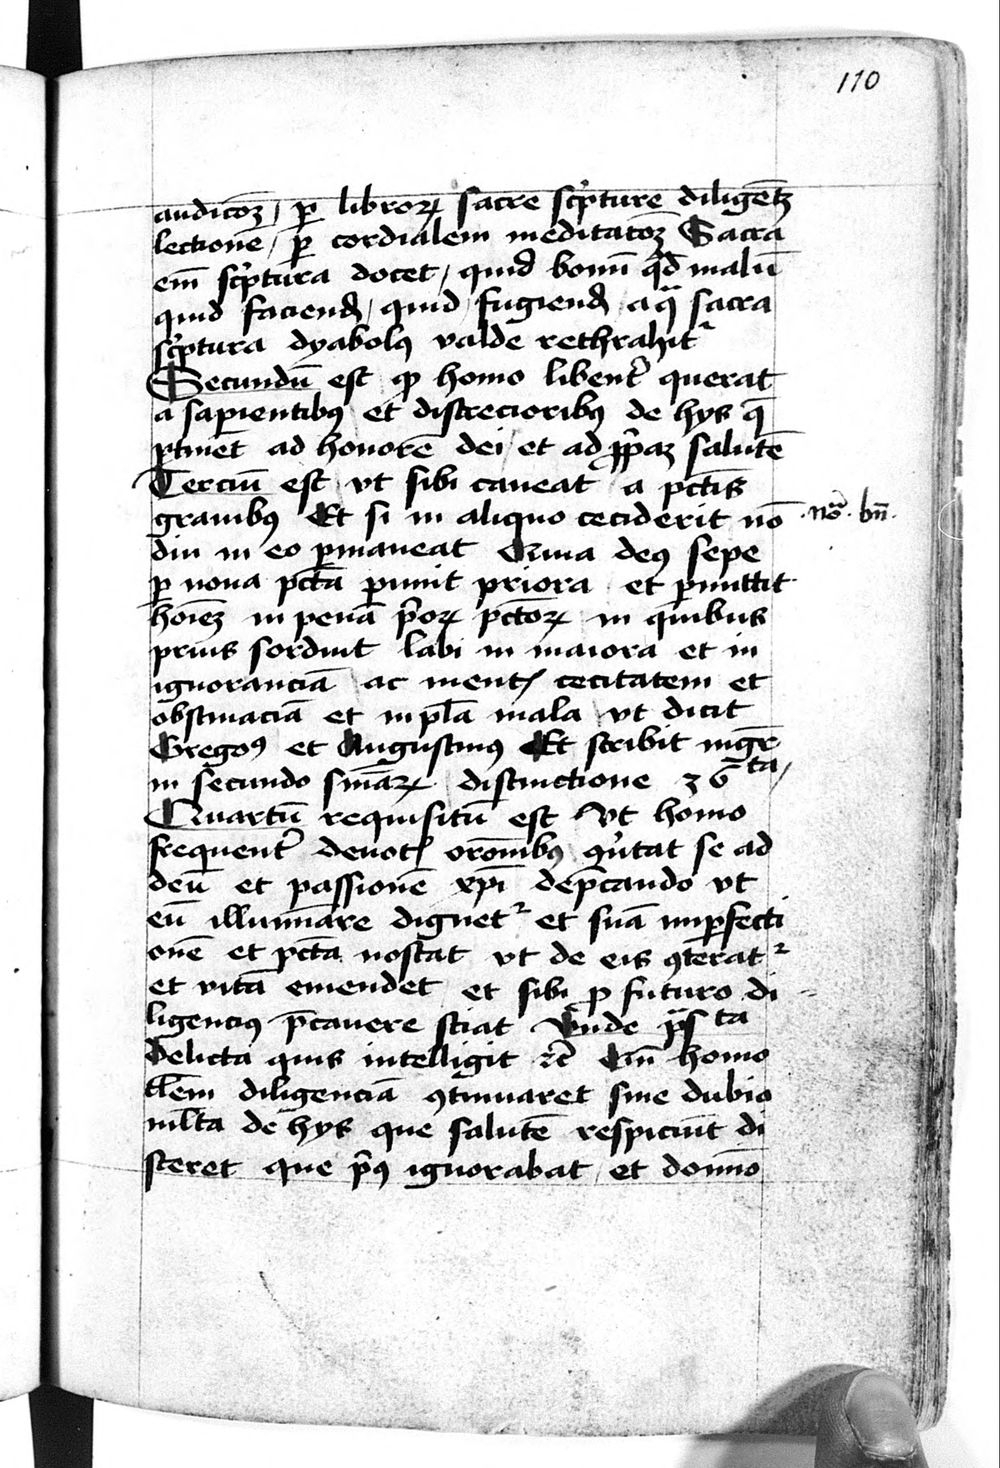 110
audicōꝫ / ꝑ libroꝝ sacre sc̓pture diligētꝫ
lectionē / ꝑ cordialem meditatōꝫ Sacra
em̄ sc̓ptura docet / quid bonū qd̄ malū
quid faciend̄ / quid fugiend̄ a qᷓ sacra
sc̓ptura dyabolꝰ valde rethrahit᷑
Secundū est ꝙ homo libent̓ querat
a sapientibꝰ et discrecioribꝰ de hys q̄
ꝑtinēt ad honorē dei / et ad ꝓp̓aꝫ salutē
Terciū est vt sibi caueat a pctīs
grauibꝰ Et si in aliquo ceciderit nō
·nō· bn̄·
diu in eo ꝑmaneat Quia deꝰ sepe
ꝑ noua pctā punit priora et ꝑmittit
hoīeꝫ in penā p̓oꝝ pctōꝝ in quibus
prius sorduit labi in maiora et in
ignoranciā ac mentꝭ cecitatem et
obstinaciā et in pl̄a mala vt dicit
Gregoꝰ et Augustinꝰ Et scribit mgr̄
in secundo sniāꝝ distinctione 36ta /
Quartū requisitū est Vt homo
frequent̓ deuotꝭ orōnibꝰ qu̓tat se ad
deū et passionē xpi̅ dep̄cando vt
eū illumīare dignet᷑ et suā imꝑfecti
onē et pctā noscat vt de eis ꝯterat᷑
et vitā emendet et sibi ꝓ futuro di
ligencius p̄cauere sciat Vnde pᷓs ta
Delicta quis intelligit ⁊c̄ Qn̄ homo
tl̄em diligenciā ꝯtinuaret sine dubio
ml̄ta de hys que salutē respiciūt di
sceret que p̓ꝰ ignorabat / et domīo